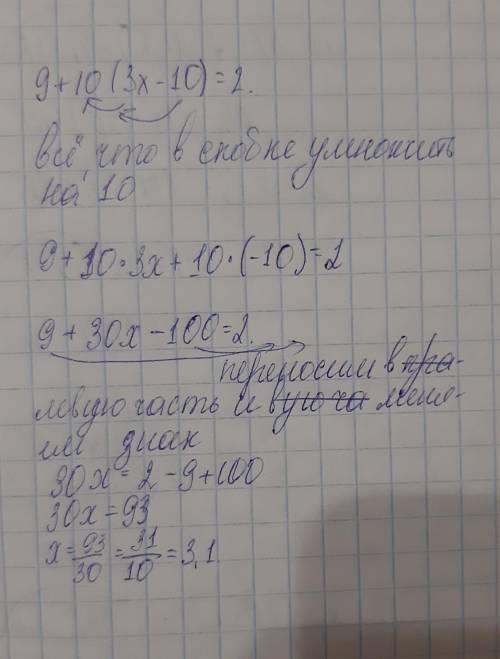 9+10(3x-10)=2.
всё, что в скобке умножить
на 10
9+10·3x+10·(-10)=2
9+30x-100=2.
переносим в пра-
левую часть и вую ча меня-
ем знак
30x=2-9+100
30x=93
x=93/30=31/10=3,1.